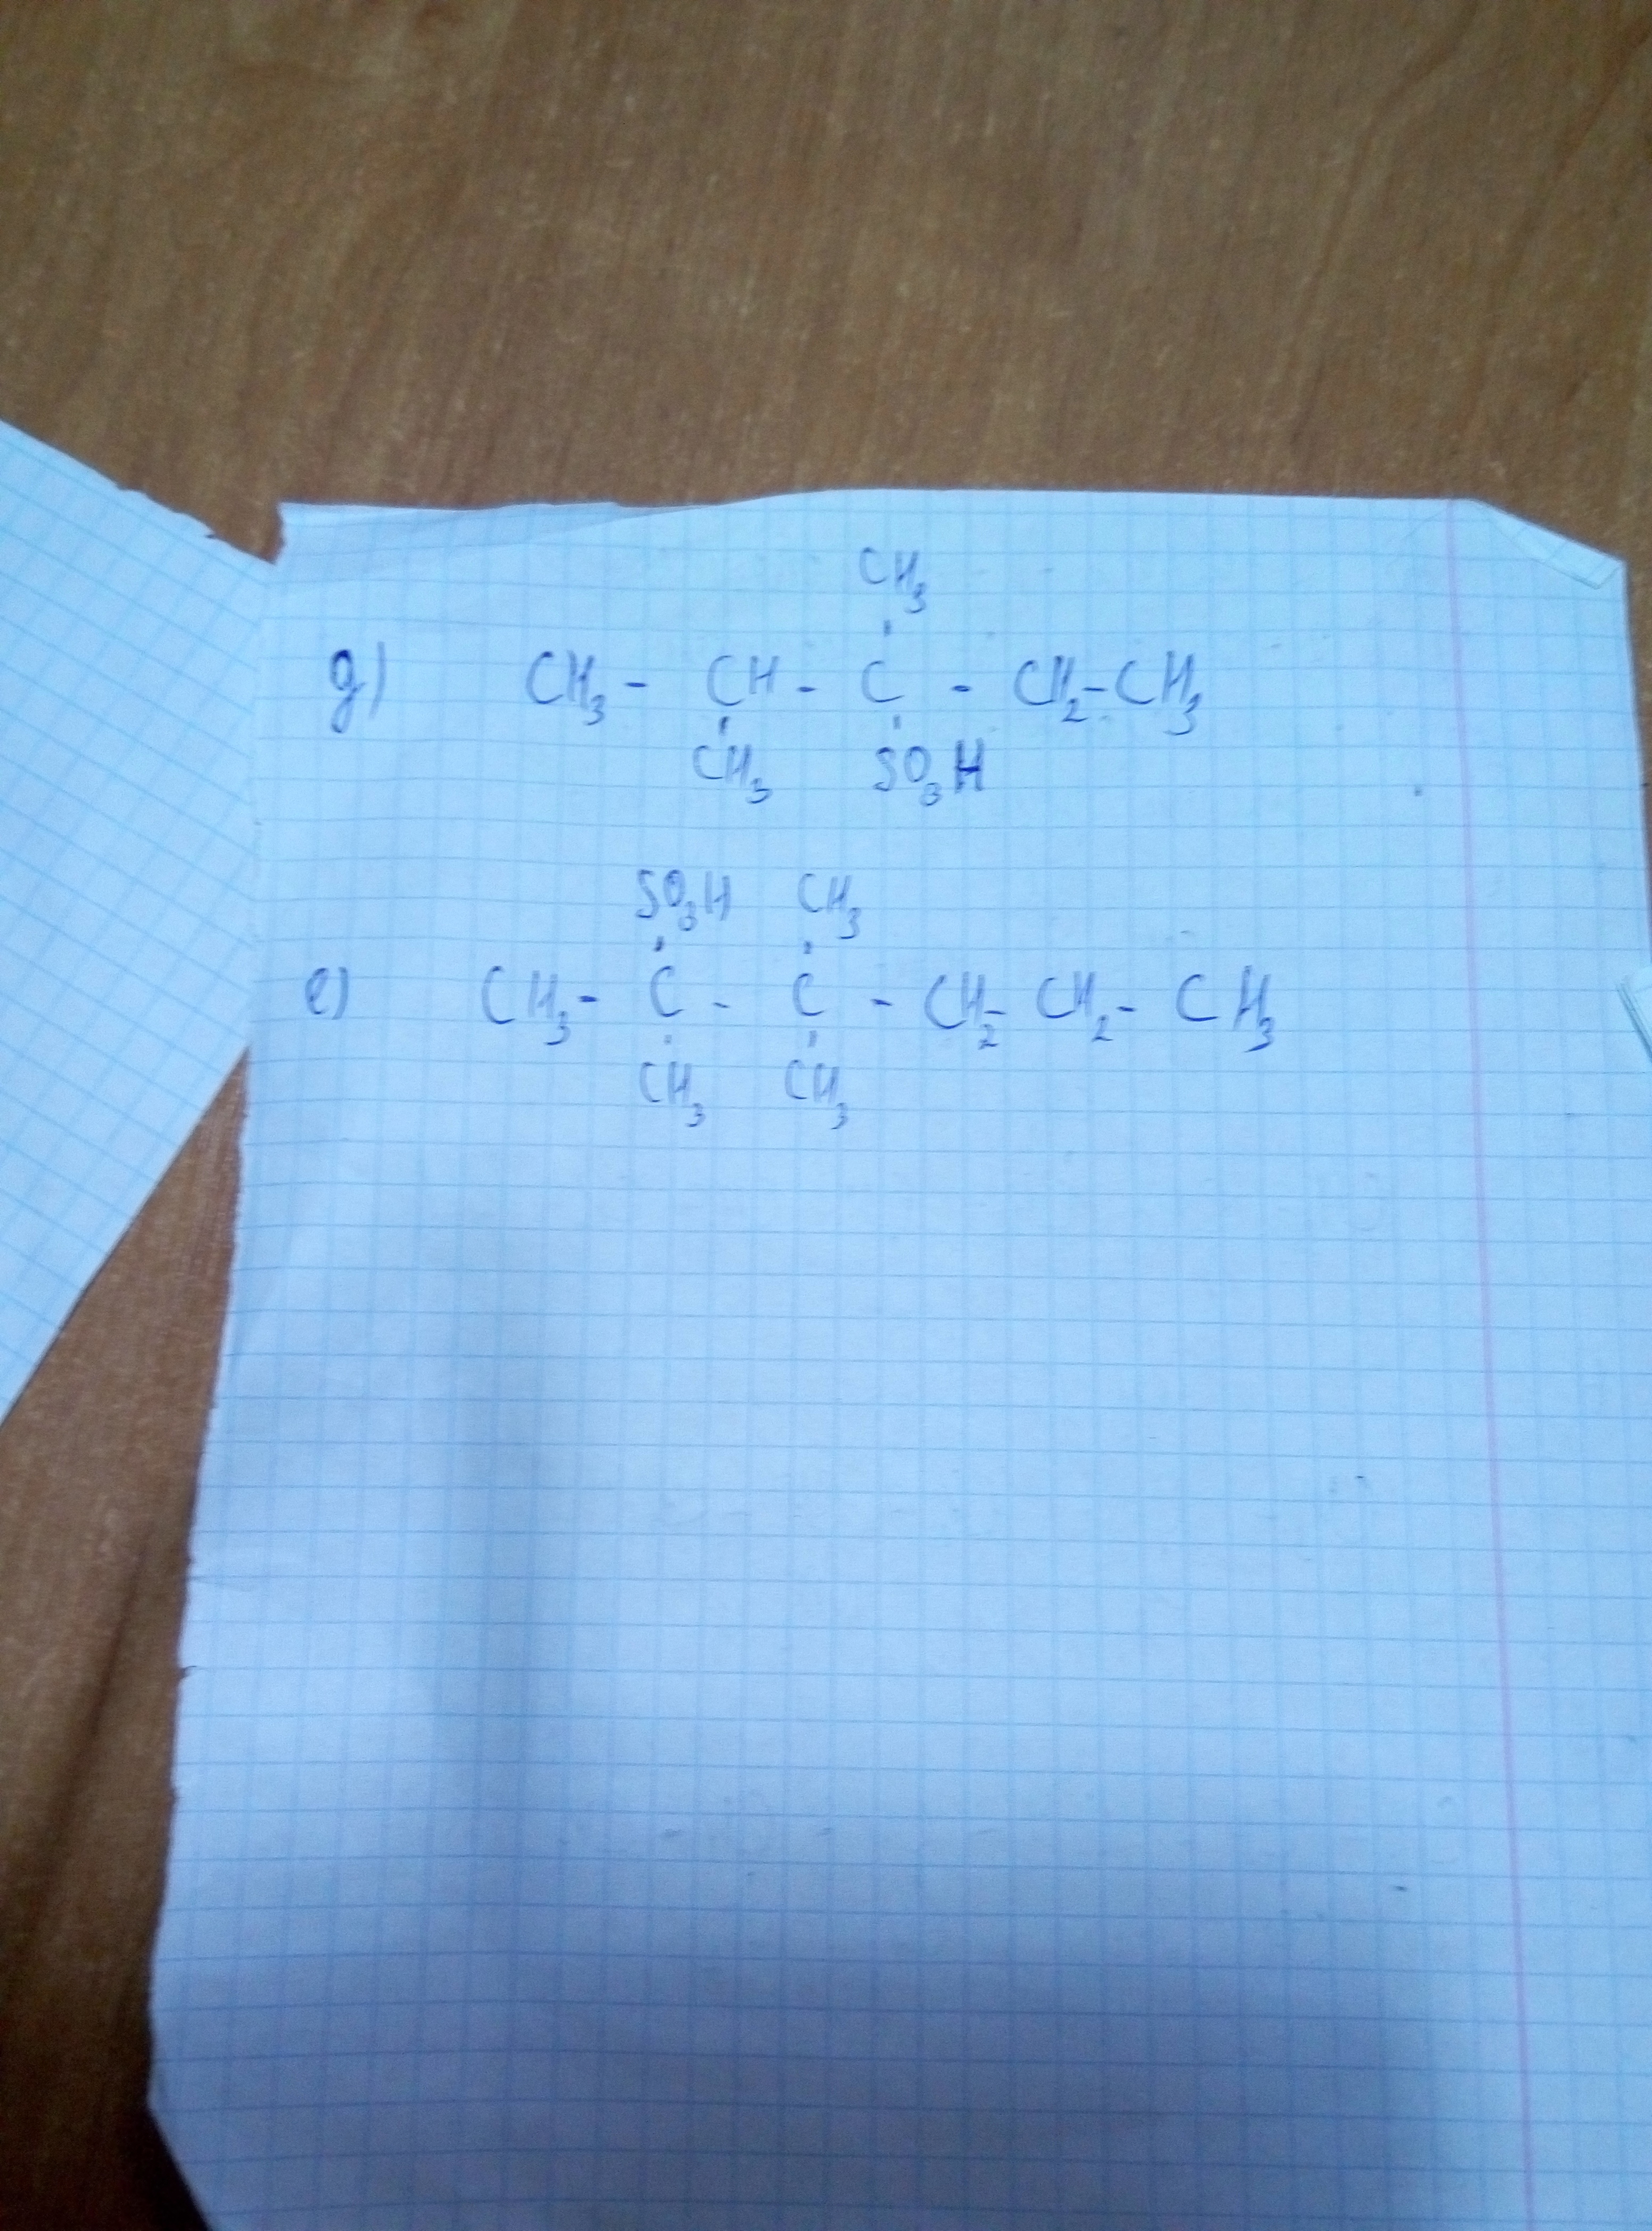 CH₃
д) CH₃ - CH - C - CH₂ - CH₃
CH₃ SO₃H
SO₃H CH₃
е) CH₃ - C - C - CH₂ - CH₂ - CH₃
CH₃ CH₃